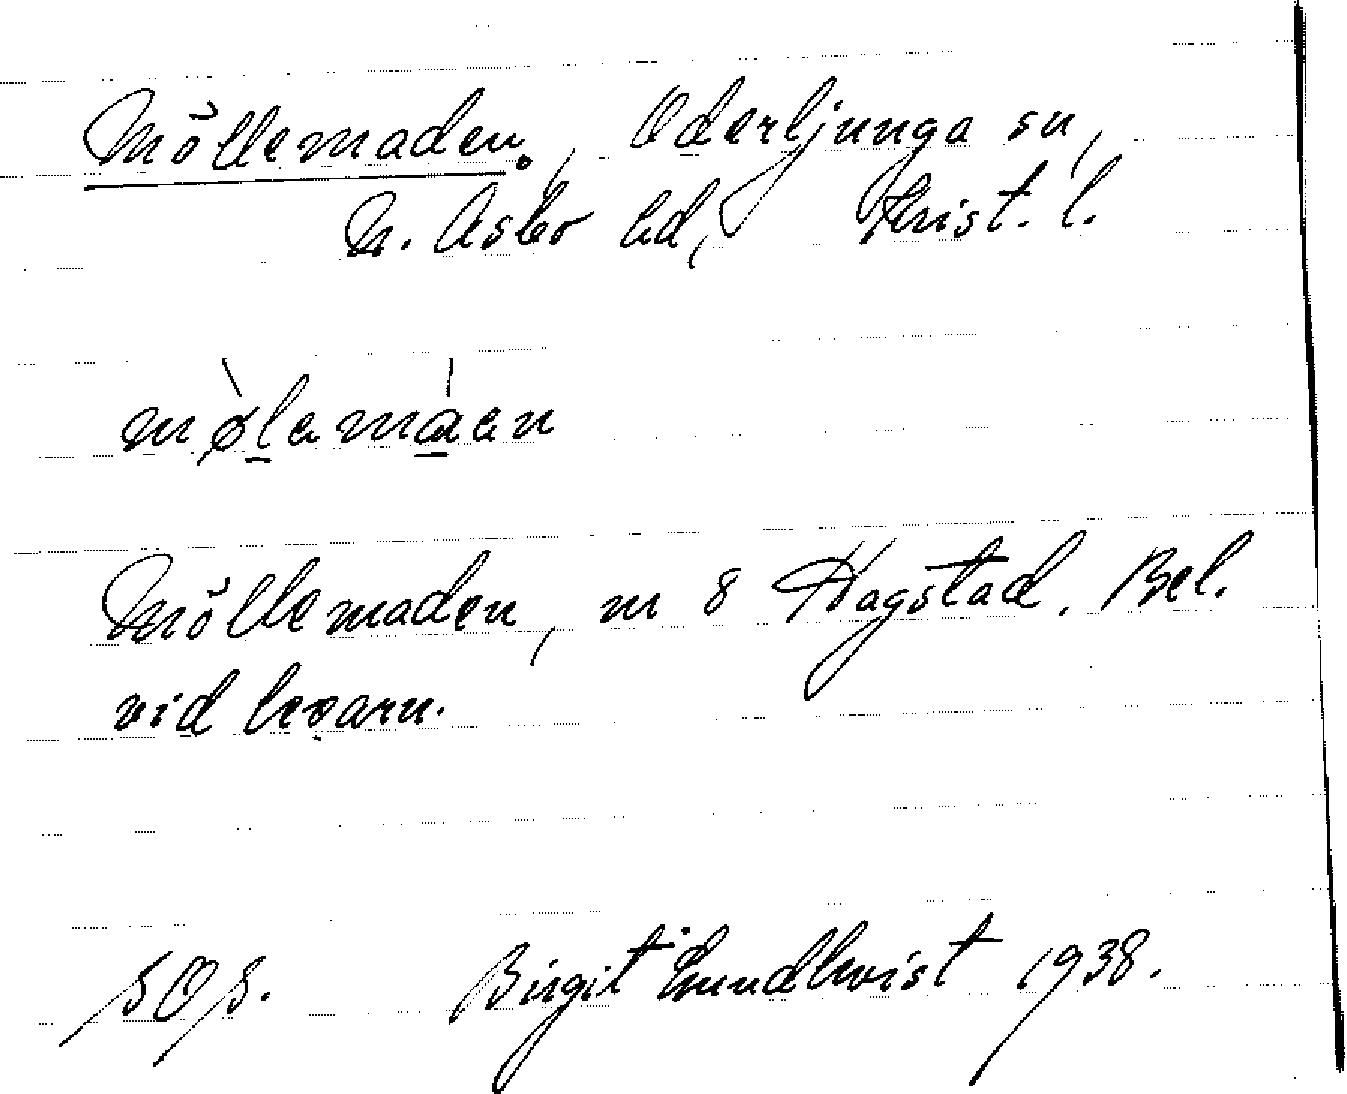 Möllemaden., Oderljunga sn,
N. Åsbo hd, Krist. l.
mø̀lemáen
Möllemaden, m 8 Hagstad. Bel.
vid kvarn.
SOS. Birgit Lundkvist 1938.